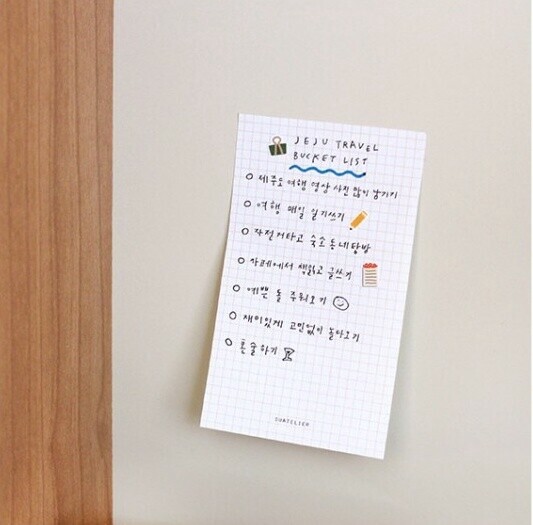 JEJU TRAVEL
BUCKET LIST
제주도 여행 영상 사진 많이 남기기
여행 매일 일기쓰기
자전거타고 숙소 동네탐방
카페에서 책읽고 글쓰기
예쁜 돌 주워오기
재미있게 고민없이 놀다오기
혼술하기
SUATELIER